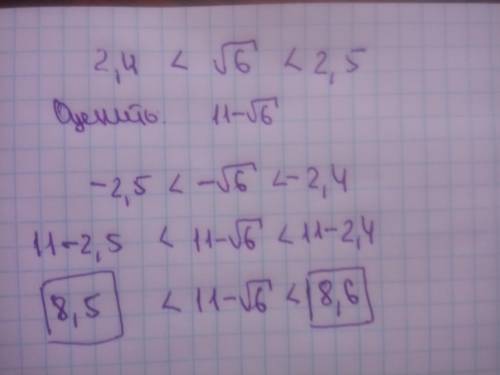 2,4 < √6 < 2,5
Оценить 11-√6
-2,5 < -√6 < -2,4
11-2,5 < 11-√6 < 11-2,4
8,5 < 11-√6 < 8,6